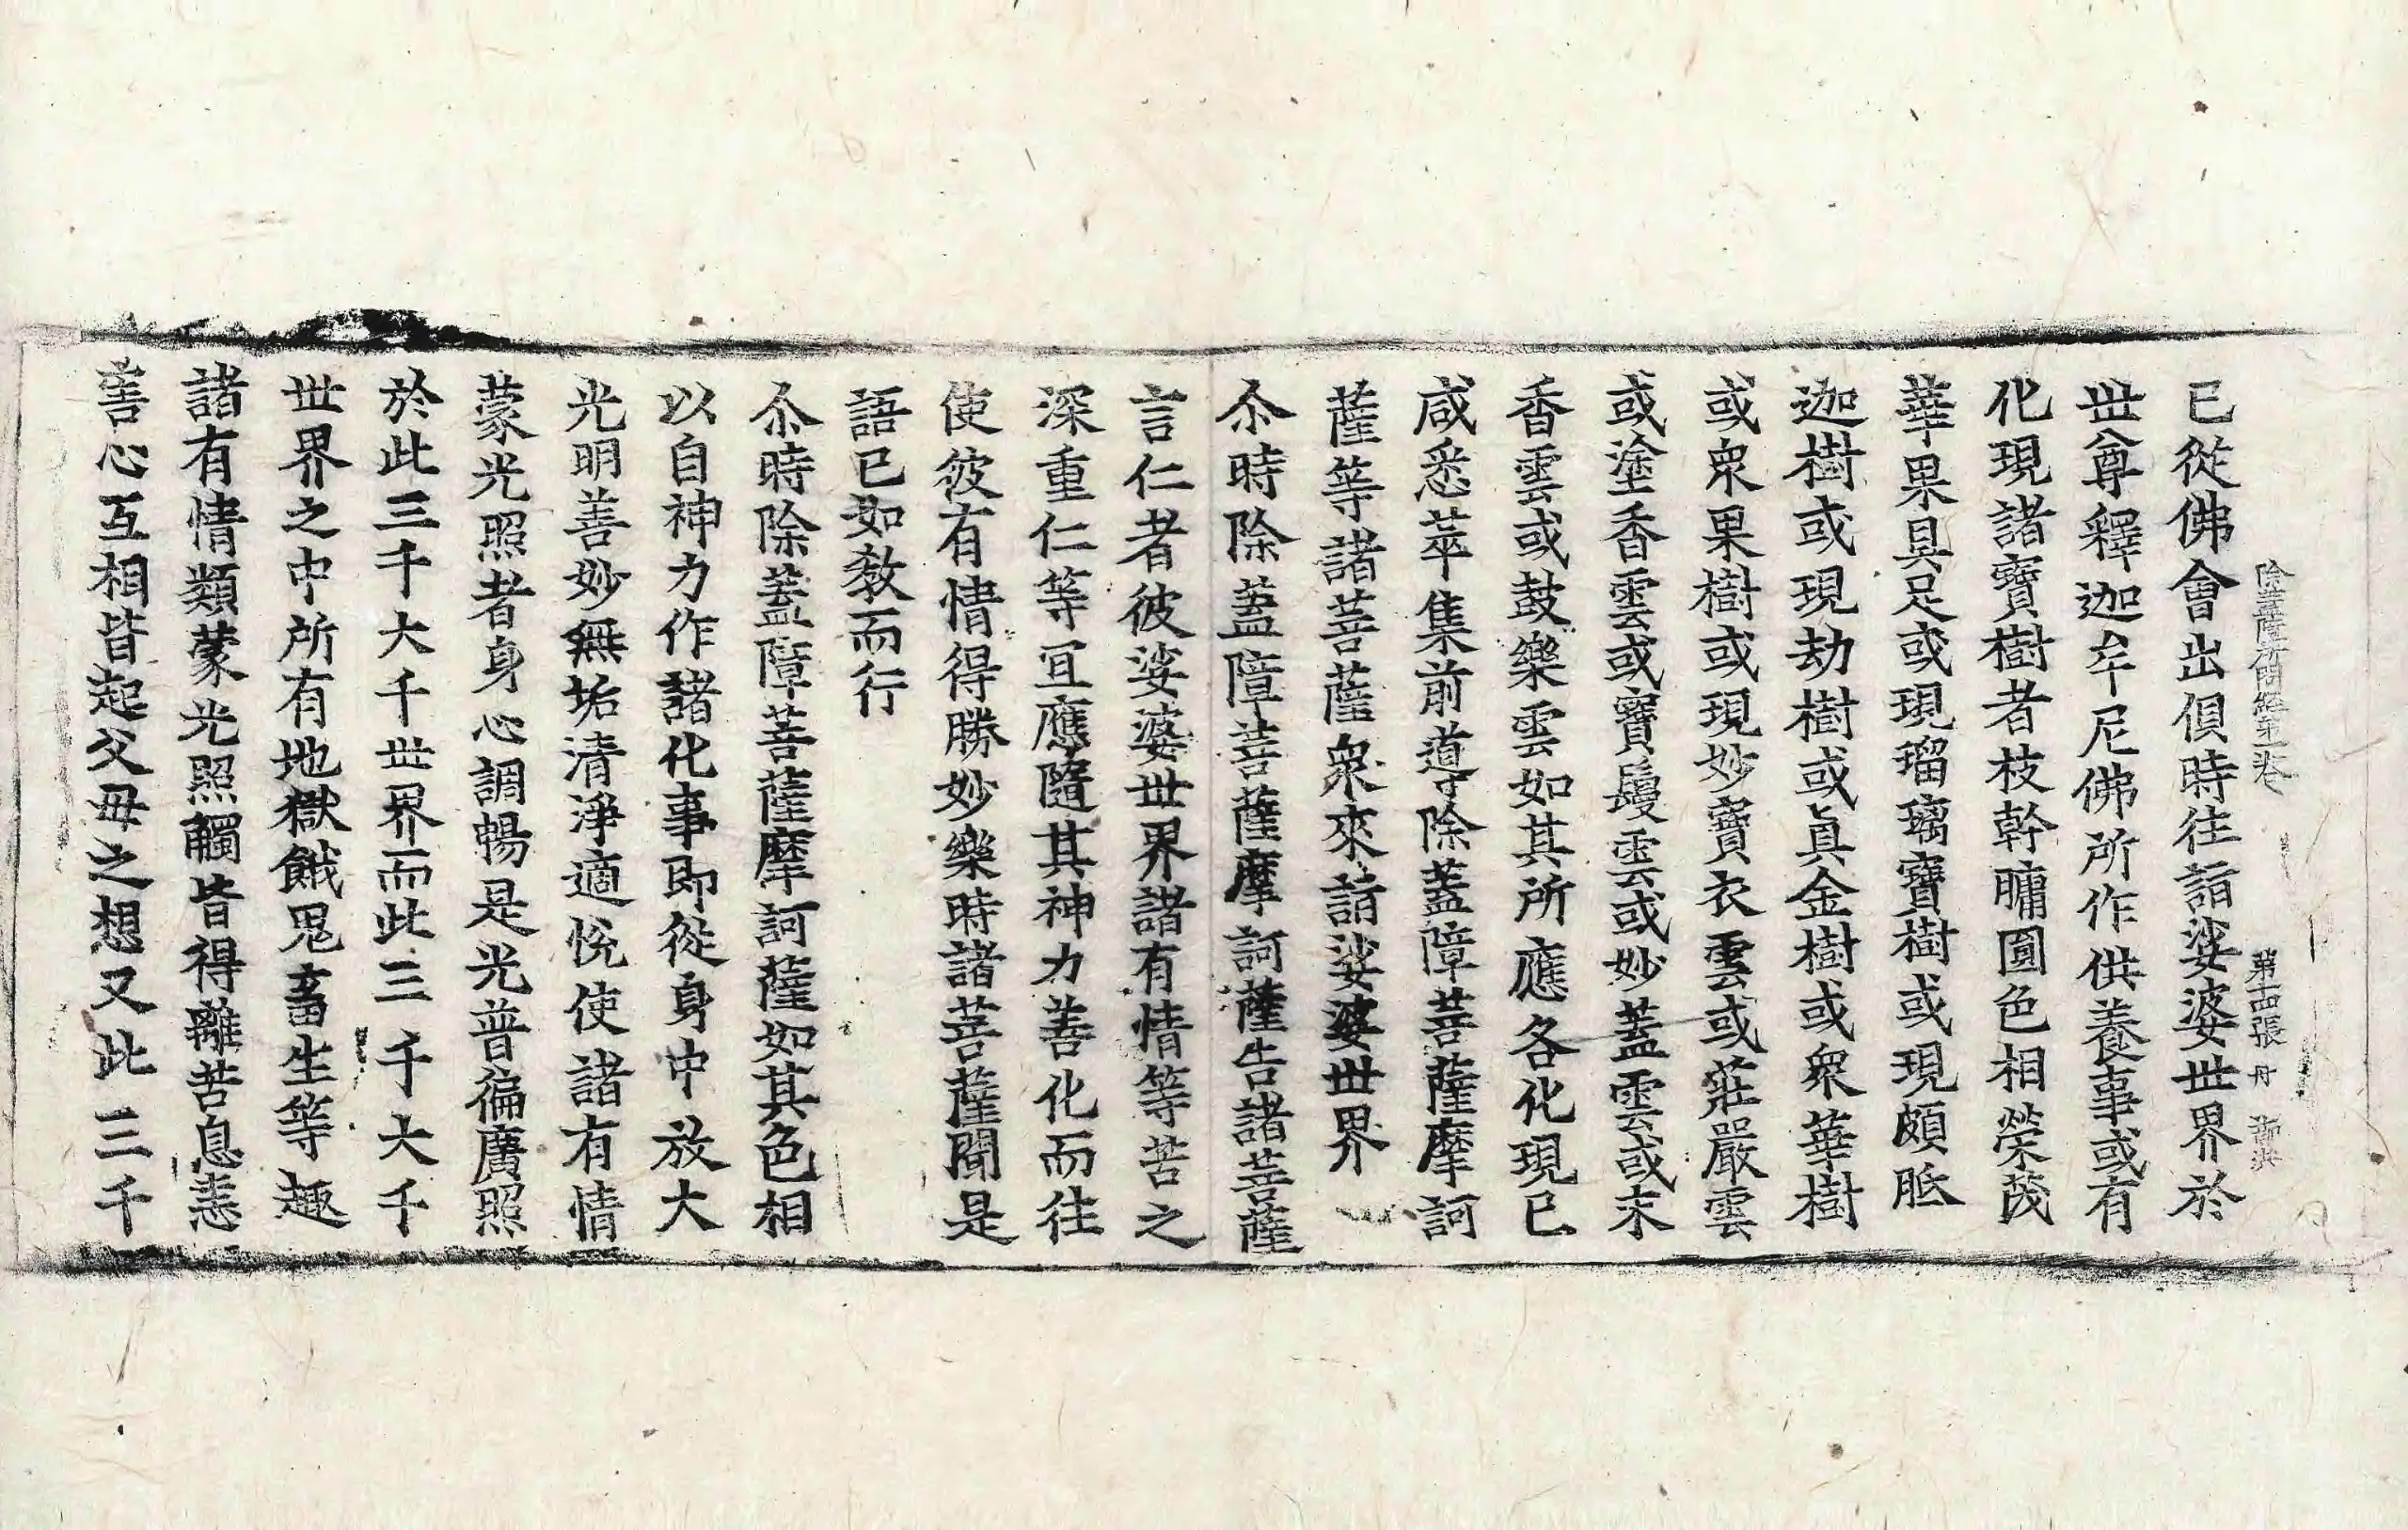 已從佛會出俱時往詣娑婆世界於
世尊釋迦牟尼佛所作供養事或有
化現諸寶樹者枝幹𦟛圓色相榮茂
華果具足或現瑠璃寶樹或現頗胝
迦樹或現劫樹或真金樹或衆華樹
或衆果樹或現妙寶衣雲或莊嚴雲
或塗香雲或寶鬘雲或妙蓋雲或末
香雲或鼓樂雲如其所應各化現已
咸悉萃集前導除蓋障菩薩摩訶
薩等諸菩薩衆來詣娑婆世界
尒時除蓋障菩薩摩訶薩告諸菩薩
言仁者彼娑婆世界諸有情等苦之
深重仁等宜應隨其神力善化而往
使彼有情得勝妙樂時諸菩薩聞是
語已如教而行
尒時除蓋障菩薩摩訶薩如其色相
以自神力作諸化事即從身中放大
光明善妙無垢清淨適悅使諸有情
蒙光照者身心調暢是光普徧廣照
於此三千大千世界而此三千大千
世界之中所有地獄餓鬼畜生等趣
諸有情類蒙光照觸皆得離苦息恚
善心互相皆起父母之想又此三千